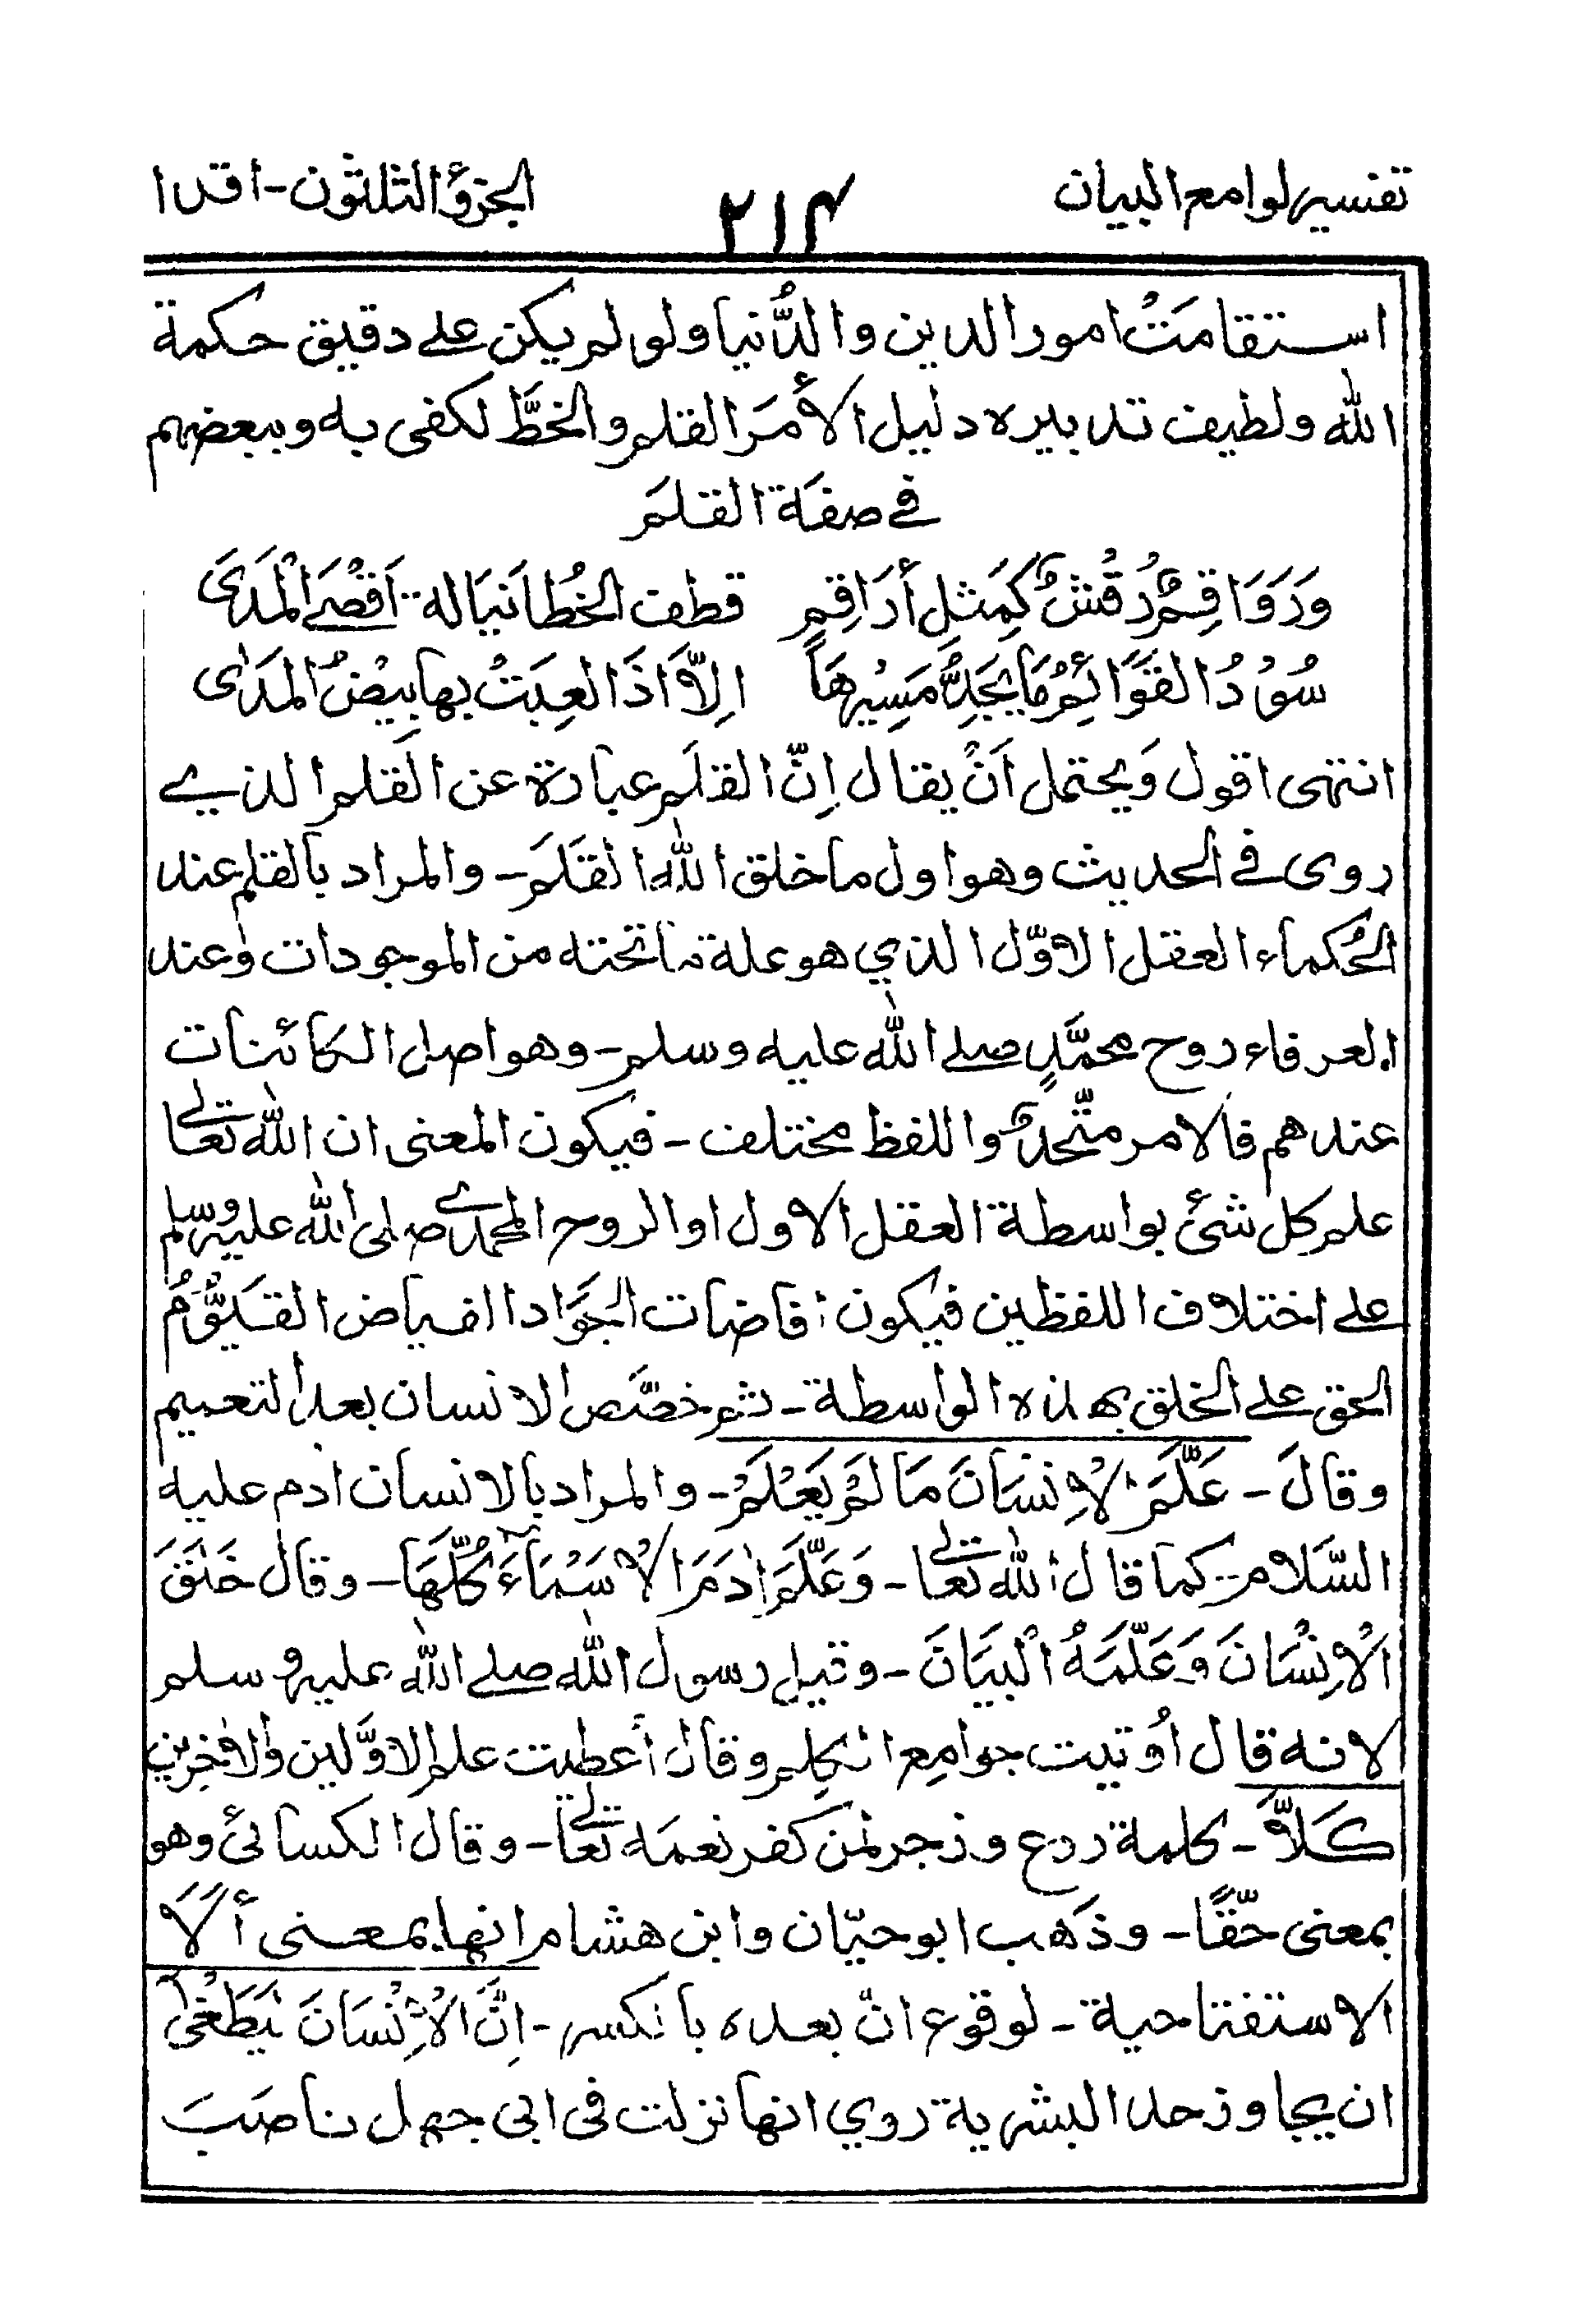 تفسير لوامع البيان ٢١٤ الجزؤ الثلثون - اقرا
استقامَتْ امور الدين والدُّنيا ولو لم يكن علے دقيق حكمة
الله ولطيف تدبيره دليل الأمرَ القلم والخطَّ لكفى به وبعضهم
فے صفَة القلمَ
وَرَوَاقِمٌ رُقْشٌ كَمِثلِ أرَاقِمِ قطف الخُطا نيَاله أقْصَے الْمَدَى
سُوْدُ القَوَائِمِ مَا يَجِدُّ مَسِيْرهَا اِلاَّ اذَا لعِبَتْ بها بِيْضُ المَدَى
انتهى اقول وَيحتمل اَنْ يقال اِنّ القلَم عبارة عن القلم الذيے
روى فے الحديث وهو اول ما خلق الله القَلَمَ - والمراد بالقلم عند
الحُكماء العقل الاوّل الذي هو علة ما تحته من الموجودات وعند
العرفاء روح محمَّدٍ صلے الله عليه وسلم - وهو اصل الكائنات
عندهم فالامر متّحدٌ واللفظ مختلف - فيكون المعنى ان الله تعالے
علم كل شئ بواسطة العقل الاول او الروح المحمدے صلى الله عليه وسلم
علے اختلاف اللفظين فيكون افاضات الجوَّاد الفياض القَيّوُمُ
الحق علے الخلق بهذه الواسطة - ثم خصَّص الانسان بعد التعميم
وقالَ - عَلَّمَ الْاِنسَانَ مَا لَمْ يَعْلَمْ - والمراد بالانسان ادم عليه
السّلام - كما قال الله تعالے - وَعَلَّمَ ادَمَ الْاَسْمَآءَ كُلَّهَا - وقال خَلَقَ
الْاِنْسَانَ وَعَلَّمَهُ الْبَيَانَ - وقيل رسول الله صلے الله عليه وسلم
لانه قال اُوتيت جوامِع الكِلم وقال أعطيت علم الاوَّلين والاٰخِرين
كَلاَّ - كلمة ردع وزجر لمن كفر نعمَه تعالے - وقال الكسائئ وهو
بمعنى حّقًا - وذَهب ابو حيّان وابن هشام انها بمعنى ألَا
الاستفتاحية - لوقوع انّ بعده بالكسر - اِنَّ الْاِنْسَانَ لَيَطْغٰى
ان يجاوز حد البشرية روي انها نزلت فى ابى جهل ناصَبَ